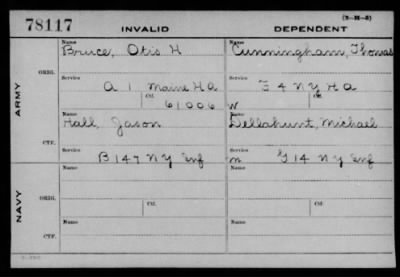 (3-M-3)
78117 INVALID DEPENDENT
Name Name
Bruce, Otis H Cunningham, Thomas
ORIG.
Service Service
A 1 Maine H A G 4 N Y H A
ARMY
Ctf. Ctf.
61006 W
Name Name
Hall, Jason Dellahunt, Michael
CTF.
Service Service
B 147 N Y Inf m G 14 N Y Inf
Name Name
ORIG.
Service Service
NAVY
Ctf. Ctf.
Name Name
CTF.